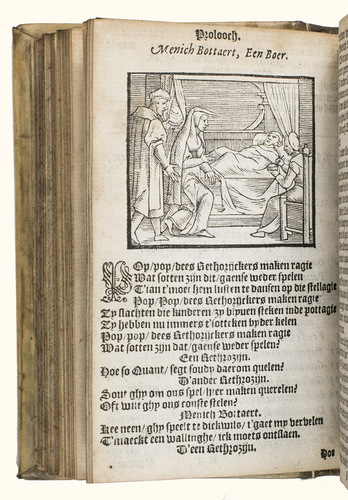 Prolooch.
Menich Bottaert, Een Boer.
POp/pop/dees Rethorijckers maken ragie
Wat sotten zijn dit/gaense weder spelen
T'ian t'moet hem lusten te dansen op die stellagie
Pop/Pop/dees Rethorijckers maken ragie
Zy slachten die kinderen zy blyven steken inde pottagie
Zy hebben nu immers t'iottken by der kelen
Pop/pop/dees Rethorijckers maken ragie
Wat sotten zijn dat/gaense weder spelen?
Een Rethrozijn.
Hoe so Quant/segt soudy daerom quelen?
D'ander Rethrozijn.
Sout ghy om ons spel/hier maken querelen?
Oft wilt ghy ons conste stelen?
Menich Bottaert.
Kee neen/ghy speelt te dickwils/t'gaet my vervelen
T'maeckt een wallinghe/ick moets ontslaen.
D'een Rethrozijn.